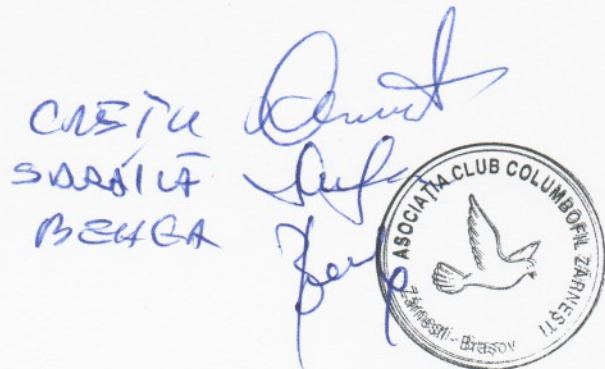 CREȚU
SDRĂILĂ
BENGA
ASOCIAȚIA CLUB COLUMBOFIL ZĂRNEȘTI
Zărnești - Brașov